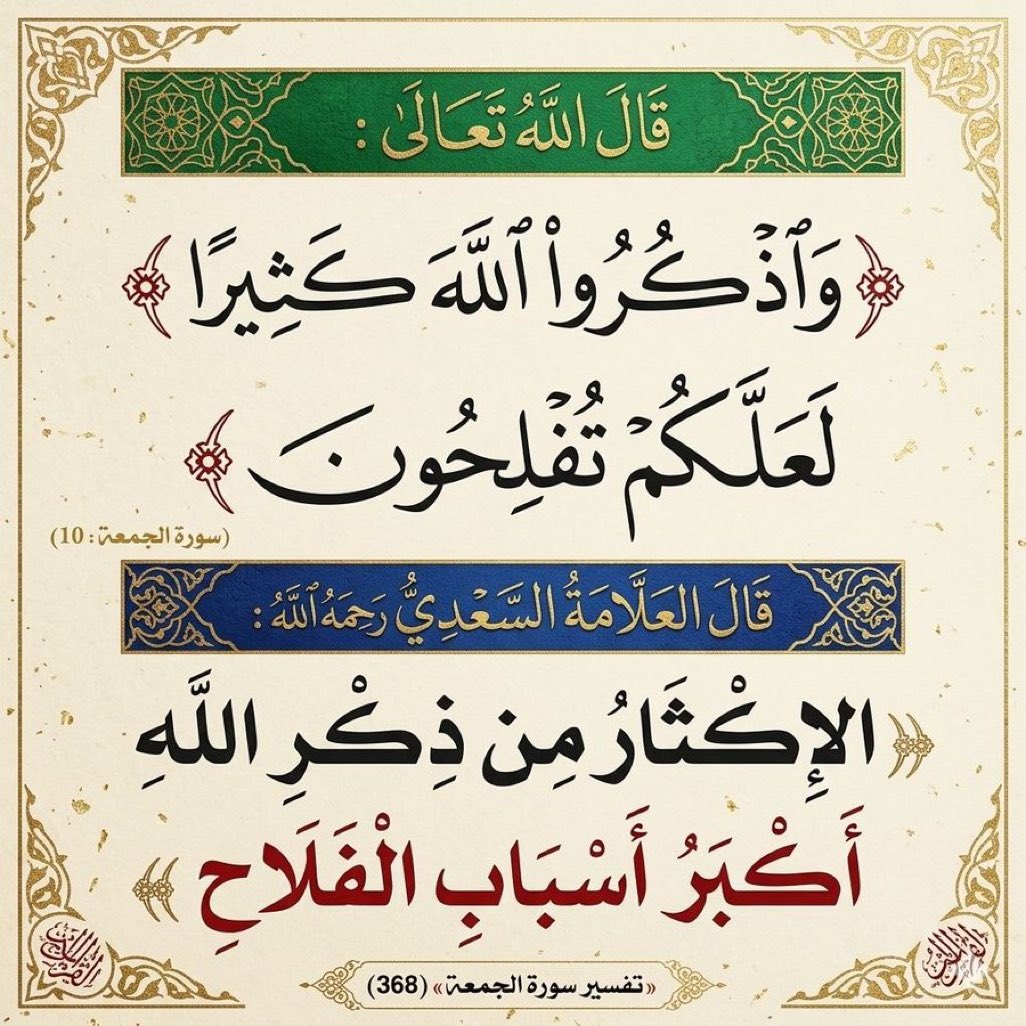 قَالَ اللَّهُ تَعَالَىٰ :
﴿ وَٱذْكُرُوا۟ ٱللَّهَ كَثِيرًا ﴾
لَعَلَّكُمْ تُفْلِحُونَ ﴾
(سورة الجمعة: 10)
قَالَ العَلَّامَةُ السَّعْدِيُّ رَحِمَهُ ٱللَّهُ :
«الإِكْثَارُ مِن ذِكْرِ اللَّهِ
أَكْبَرُ أَسْبَابِ الْفَلَاحِ»
«تفسير سورة الجمعة» (368)